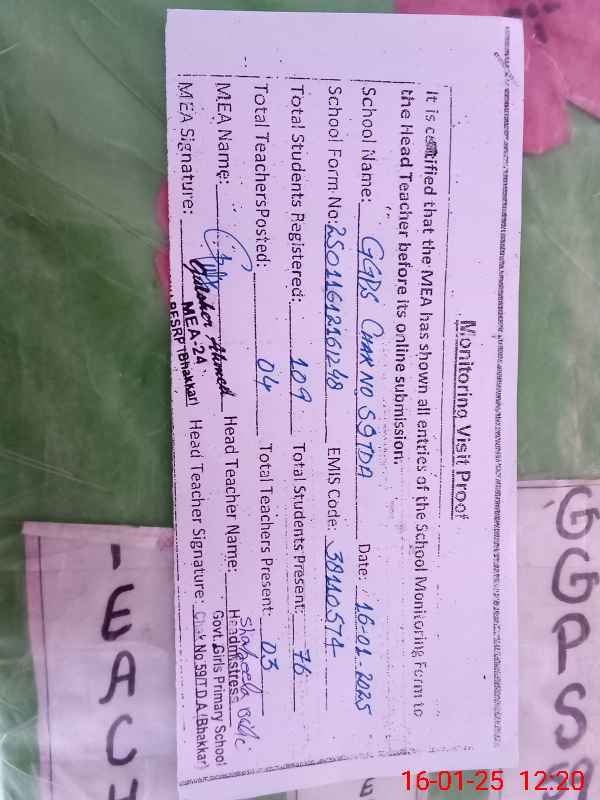 Monitoring Visit Proof
It is certified that the MEA has shown all entries of the School Monitoring Form to
the Head Teacher before its online submission.
School Name: GGPS Chak No 59 TDA Date: 16-01-2025
School Form No: EMIS Code: 38110574
Total Students Registered: 109 Total Students Present: 76
Total Teachers Posted: 04 Total Teachers Present: 03
MEA Name: Ahmed Head Teacher Name: Shakeela
MEA-24
Headmistress
Govt. Girls Primary School
MEA Signature: PESRP (Bhakkar) Head Teacher Signature: Chak No.59/T.D.A (Bhakkar)
GGPS
59
EACH
16-01-25 12:20